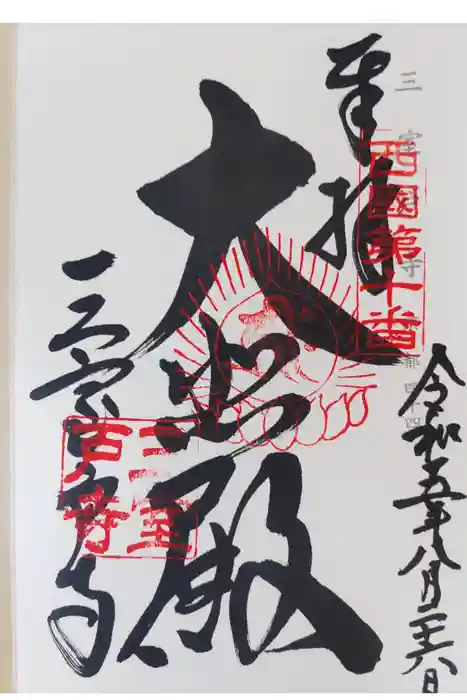 奉拝
西國第十番
三室戸寺
大悲殿
三室戸寺
三室
戸寺
令和五年八月二十六日